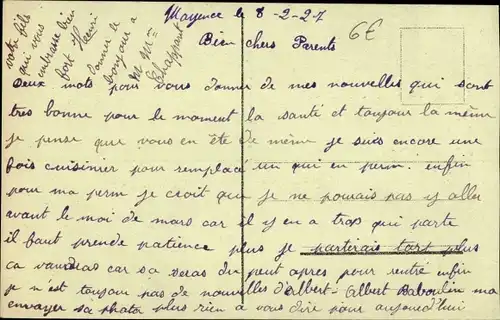 Mayence le 8-2-27
6€
Bien chers Parents
Deux mots pour vous donner de mes nouvelles qui sont
tres bonne pour le moment la santé et toujour la même
je pense que vous en ête de même je suis encore une
fois cuisinier pour remplacé un qui en perm. enfin
pour ma perm je croit que je ne pourais pas y aller
avant le moi de mars car il y en a trop qui parte
il faut prende patience plus je partirais tart plus
ca vaudras car sa seras du peut apres pour rentré enfin
je n'est toujour pas de nouvelles d'Albert - Albert Baboulin ma
envoyer sa photo plus rien a vous dire pour aujourd'hui
votre fils
qui vous
embrasse bien
fort Henri
donner le
bonjour a
M Mme